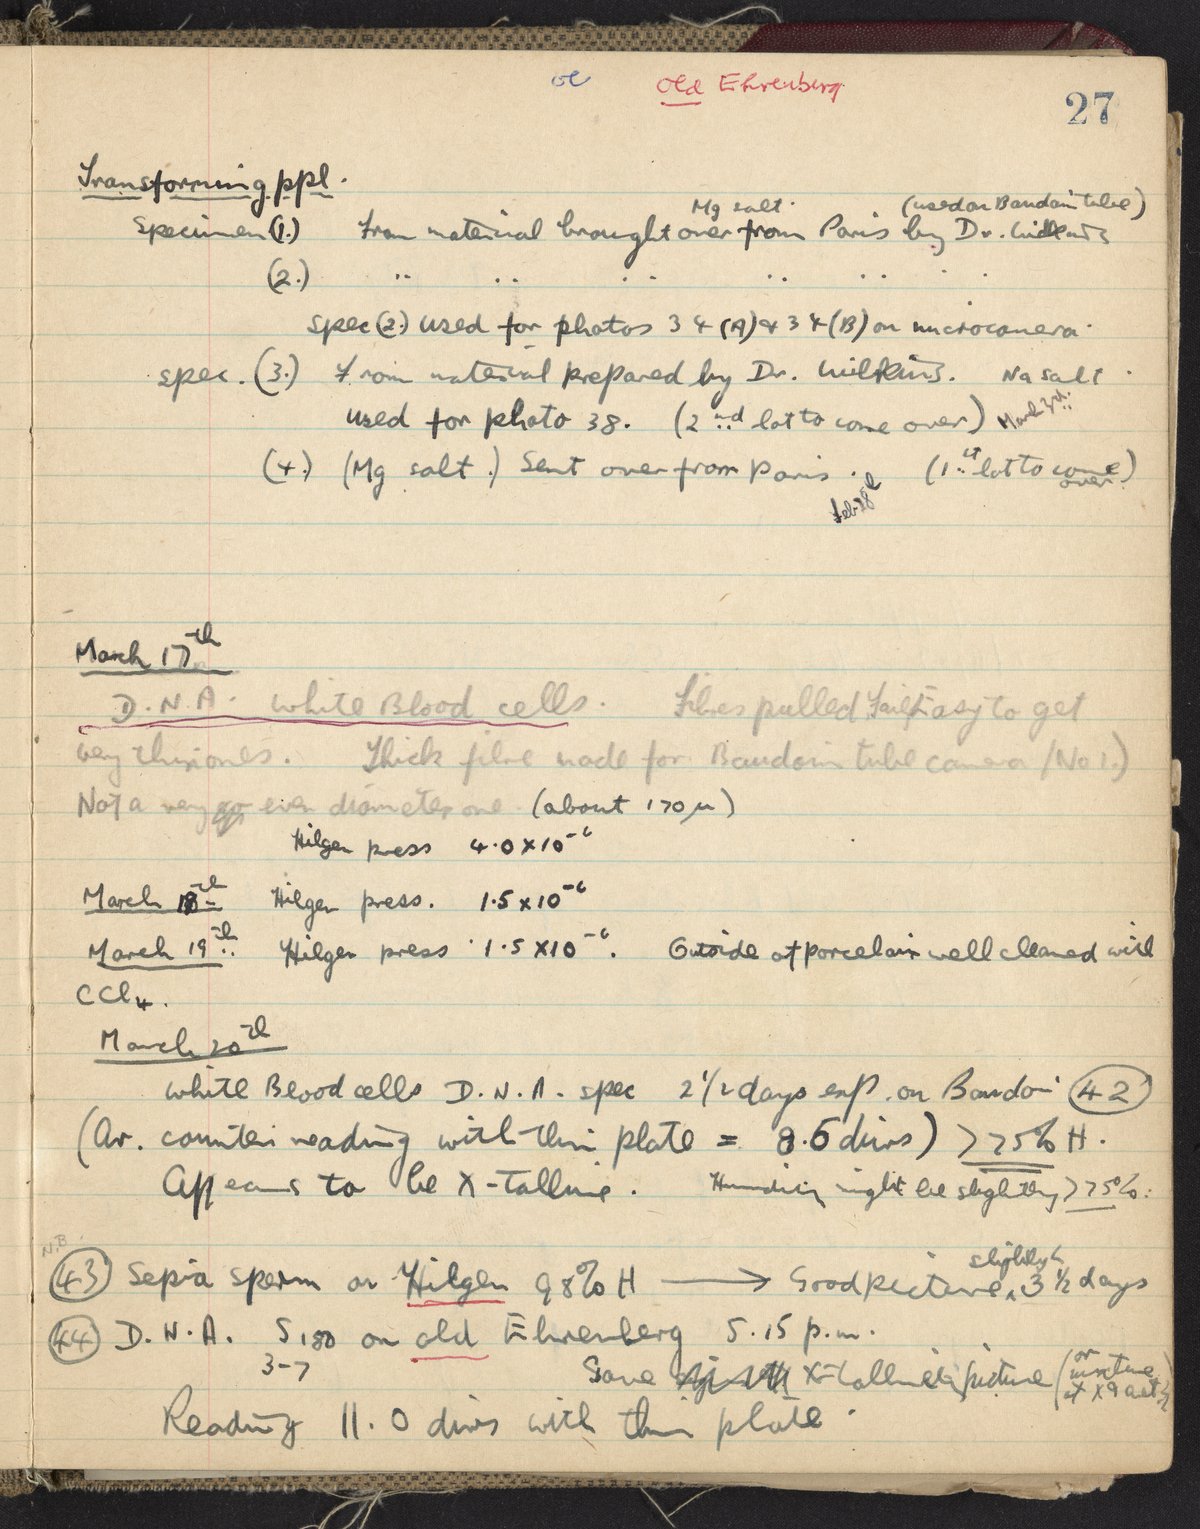 old Ehrenberg
27
Transforming ppl.
Mg salt. (used on Baudoin tube)
Specimen (1.) From material brought over from Paris by Dr. Wilkins
(2.) " " " " " " "
spec (2.) used for photos 34 (A) & 34 (B) on microcamera.
spec. (3.) From material prepared by Dr. Wilkins. Na salt.
used for photo 38. (2nd lot to come over) March 3rd.
(4.) (Mg salt.) Sent over from Paris. (1st lot to come over)
Feb 28th
March 17th
D.N.A. White Blood cells. Fibres pulled Fairly Easy to get
very thin ones. Thick fibre made for Baudoin tube camera (No 1.)
Not a very even diameter one. (about 170 μ)
Hilger press 4.0 x 10⁻⁶
March 18th Hilger press. 1.5 x 10⁻⁶
March 19th. Hilger press 1.5 x 10⁻⁶. Outside of porcelain well cleaned with
CCl₄.
March 20th
White Blood cells D.N.A. spec 2 1/2 days exp. on Baudoin 42
(Av. counter reading with thin plate = 8.5 divs) > 75% H.
Appears to be X-talline. Humidity might be slightly > 75%.
N.B.
43 Sepia sperm on Hilger 98% H → Good picture, slightly 3 1/2 days
44 D.N.A. S180 on old Ehrenberg 5.15 p.m.
3-7
Gave X-talline picture (or mixture of X &
Reading 11.0 divs with thin plate.